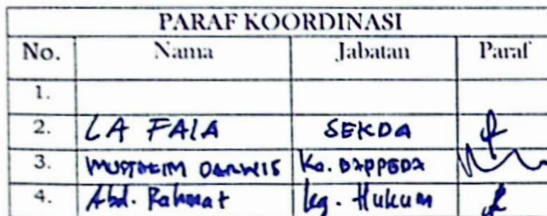 PARAF KOORDINASI
No. Nama Jabatan Paraf
1.
2. LA FALA SEKDA
3. MUSTAEIM DARWIS Ka. BAPPEDA
4. Abd. Rahmat Kg. Hukum